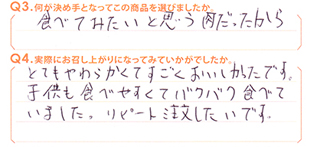 Q3.何が決め手となってこの商品を選びましたか。
食べてみたいと思う肉だったから
Q4.実際にお召し上がりになってみていかがでしたか。
とてもやわらかくてすごくおいしかったです。
子供も食べやすくてパクパク食べて
いました。リピート注文したいです。